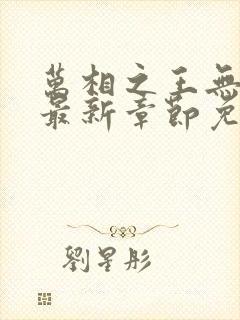 萬相之王無
最新章節免
劉星彤